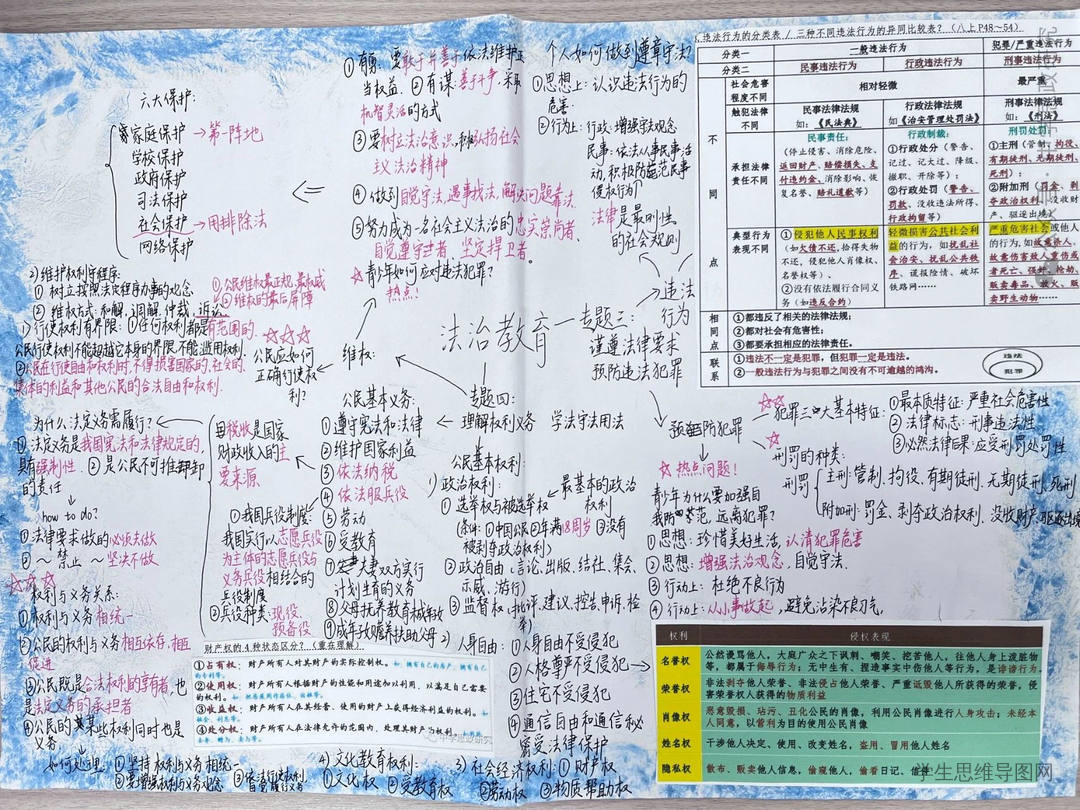 法治教育一专题三：
遵守法律要求
预防违法犯罪
违法
行为
专题四：
理解权利义务 学法守法用法
六大保护：
家庭保护→第一阵地
学校保护
政府保护
司法保护
社会保护→用排除法
网络保护
①有勇，要敢于并善于依法维护正
当权益. ②有谋：善于斗争，采取
机智灵活的方式
③要树立法治意识，积极弘扬社会
主义法治精神
④做到自觉守法，遇事找法，解决问题靠法.
⑤努力成为一名社会主义法治的忠实崇尚者、
自觉遵守者 坚定捍卫者。
青少年如何应对违法犯罪？
热点！
个人如何做到遵章守法？
①思想上：认识违法行为的
危害.
②行为上：行政：增强守法观念
民事：依法从事民事活
动，积极防范民事
侵权行为
法律是最刚性
的社会规则
违法行为的分类表 / 三种不同违法行为的异同比较表？（八上P48～54）
分类一 一般违法行为 犯罪/严重违法行为
分类二 民事违法行为 行政违法行为 刑事违法行为
不同点
社会危害程度不同 相对轻微 最严重
触犯法律不同
民事法律法规
如：《民法典》
行政法律法规
如《治安管理处罚法》
刑事法律法规
如：《刑法》
承担法律责任不同
民事责任：
（停止侵害、消除危险、
返回财产、赔偿损失、支
付违约金、消除影响、恢
复名誉、赔礼道歉等）
行政制裁：
①行政处分（警告、
记过、记大过、降级、
撤职、开除等）；
②行政处罚（警告、
罚款、没收违法所得、
行政拘留等）
刑罚处罚：
①主刑（管制、拘役、
有期徒刑、无期徒刑、
死刑）；
②附加刑（罚金、剥
夺政治权利、没收财
产、驱逐出境）
典型行为表现不同
①侵犯他人民事权利
（如欠债不还、拾得失物
不还、侵犯他人肖像权、
名誉权等）、
②没有依法履行合同义
务（如违反合约）
轻微损害公共社会利
益的行为，如扰乱社
会治安、扰乱公共秩
序、谎报险情、破坏
铁路网……
严重危害社会或他人
的行为，如故意杀人、
故意伤害致人重伤或
者死亡、强奸、抢劫、
贩卖毒品、放火、贩
卖野生动物……
相同点
①都违反了相关的法律法规；
②都对社会有危害性；
③都要承担相应的法律责任。
联系
①违法不一定是犯罪，但犯罪一定是违法。
②一般违法行为与犯罪之间没有不可逾越的鸿沟。
违法
犯罪
2) 维护权利守程序：
① 树立按照法定程序办事的观念
② 维权方式：和解、调解、仲裁、诉讼
①公民维权最正规、最权威
②维权的最后屏障
1) 行使权利有界限：①任何权利都是有范围的.
公民行使权利不能超越它本身的界限，不能滥用权利.
②公民在行使自由和权利时，不得损害国家的、社会的、
集体的利益和其他公民的合法自由和权利.
公民应如何
正确行使权
利？
维权：
为什么法定义务需履行？
① 法定义务是我国宪法和法律规定的，
具有强制性. ②是公民不可推卸
的责任
how to do?
① 法律要求做的必须去做
② ～ 禁止 ～ 坚决不做
权利与义务关系：
①权利与义务相统一
②公民的权利与义务相互依存，相互
促进
③公民既是合法权利的享有者，也
是法定义务的承担者
④公民的某些权利同时也是
义务
如何处理：①坚持权利与义务相统一
②要增强权利与义务观念
③依法行使权利
自觉履行义务
税收是国家
财政收入的主
要来源
①我国兵役制度：
我国实行以志愿兵役
为主体的志愿兵役与
义务兵役相结合的
兵役制度
②兵役种类：现役、
预备役
公民基本义务：
①遵守宪法和法律
②维护国家利益
③依法纳税
④依法服兵役
⑤劳动
⑥受教育
⑦夫妻双方实行
计划生育的义务
⑧父母抚养教育未成年
⑨成年子女赡养扶助父母
公民基本权利：
1) 政治权利：
①选举权与被选举权→最基本的政治权利
(条件：①中国公民②年满18周岁③没有
被剥夺政治权利)
②政治自由(言论、出版、结社、集会、
示威、游行)
③监督权(批评、建议、控告、申诉、检
2) 人身自由：①人身自由不受侵犯
②人格尊严不受侵犯→
③住宅不受侵犯
④通信自由和通信秘
密受法律保护
3) 社会经济权利：①财产权
②劳动权 ③物质帮助权
4) 文化教育权利：
①文化权 ②受教育权
预防犯罪
犯罪三大基本特征：
①最本质特征：严重社会危害性
②法律标志：刑事违法性
③必然法律后果：应受刑罚处罚性
刑罚的种类：
刑罚
主刑：管制、拘役、有期徒刑、无期徒刑、死刑
附加刑：罚金、剥夺政治权利、没收财产、驱逐出境
热点问题！
青少年为什么要加强自
我防范，远离犯罪？
①思想：珍惜美好生活，认清犯罪危害
②思想：增强法治观念，自觉守法.
③行动上：杜绝不良行为
④行动上：从小事做起，避免沾染不良习气.
财产权的4种状态区分？（重在理解）
①占有权：财产所有人对其财产的实际控制权。
②使用权：财产所有人根据财产的性能和用途加以利用，以满足自己需要
的权利。
③收益权：财产所有人在其经营、使用的财产上获得经济利益的权利。
④处分权：财产所有人在法律允许的范围内，处理其财产的权利。
权利 侵权表现
名誉权 公然谩骂他人，大庭广众之下讽刺、嘲笑、挖苦他人，往他人身上泼脏物
等，都属于侮辱行为；无中生有、捏造事实中伤他人等行为，是诽谤行为。
荣誉权 非法剥夺他人荣誉、非法侵占他人荣誉、严重诋毁他人所获得的荣誉，侵
害荣誉权人获得的物质利益
肖像权 恶意毁损、玷污、丑化公民的肖像，利用公民肖像进行人身攻击；未经本
人同意，以营利为目的使用公民肖像
姓名权 干涉他人决定、使用、改变姓名，盗用、冒用他人姓名
隐私权 散布、贩卖他人信息，偷窥他人，偷看日记、信件
学生思维导图网